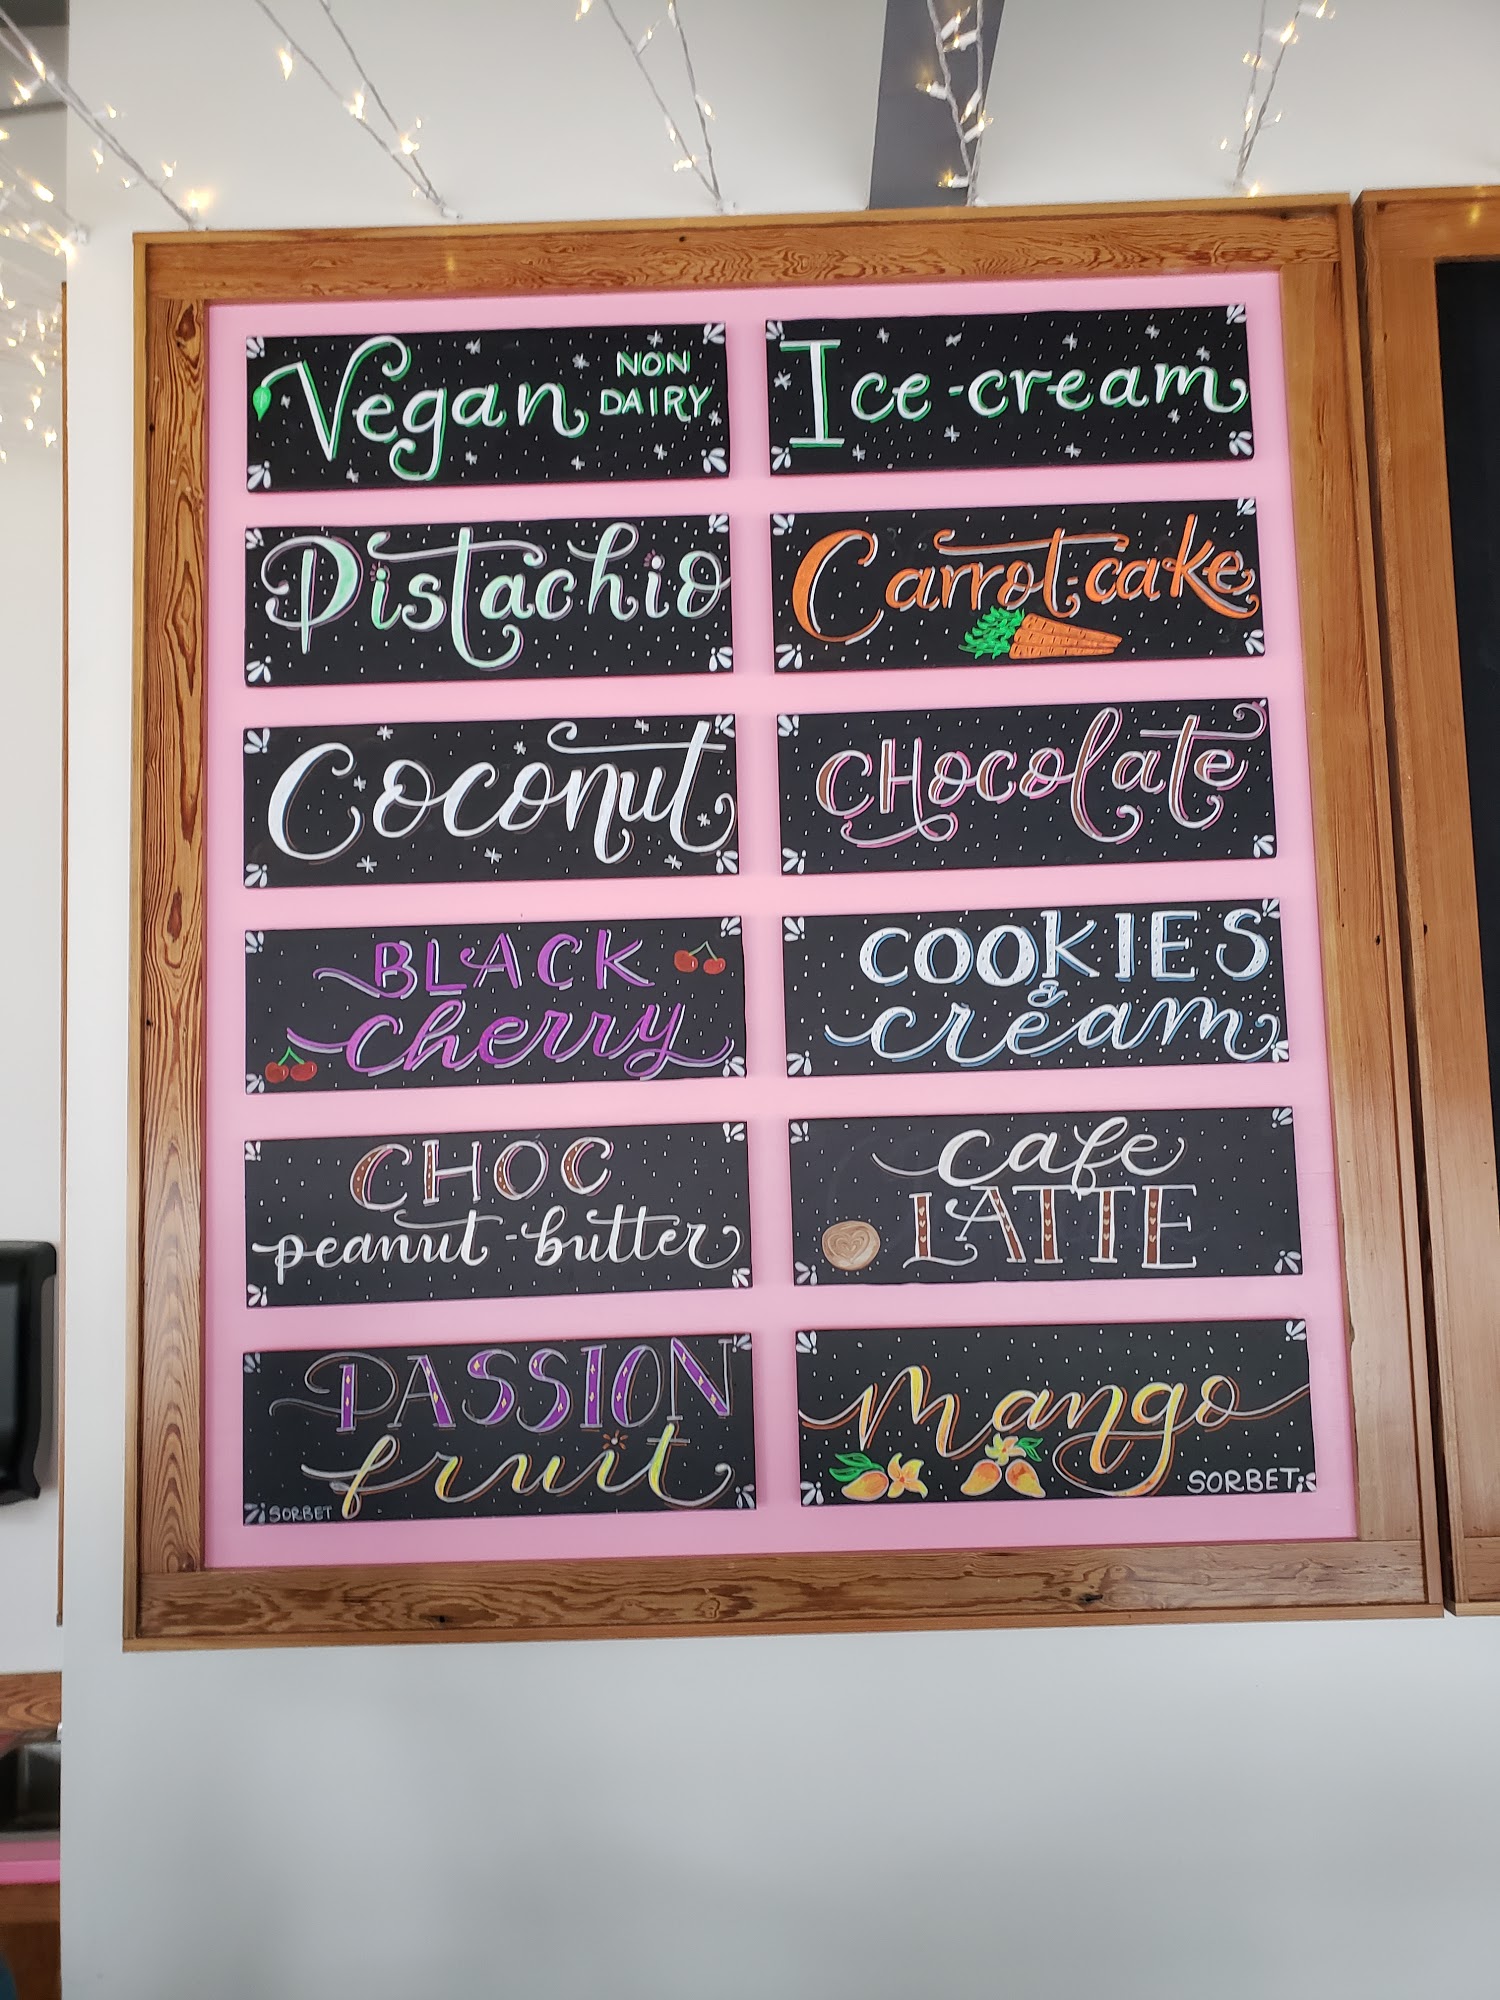 Vegan NON DAIRY
Ice-cream
Pistachio
Carrot-cake
Coconut
CHocolate
BLACK
cherry
COOKIES
&
cream
CHOC
peanut-butter
cafe
LATTE
PASSION
fruit
SORBET
Mango
SORBET